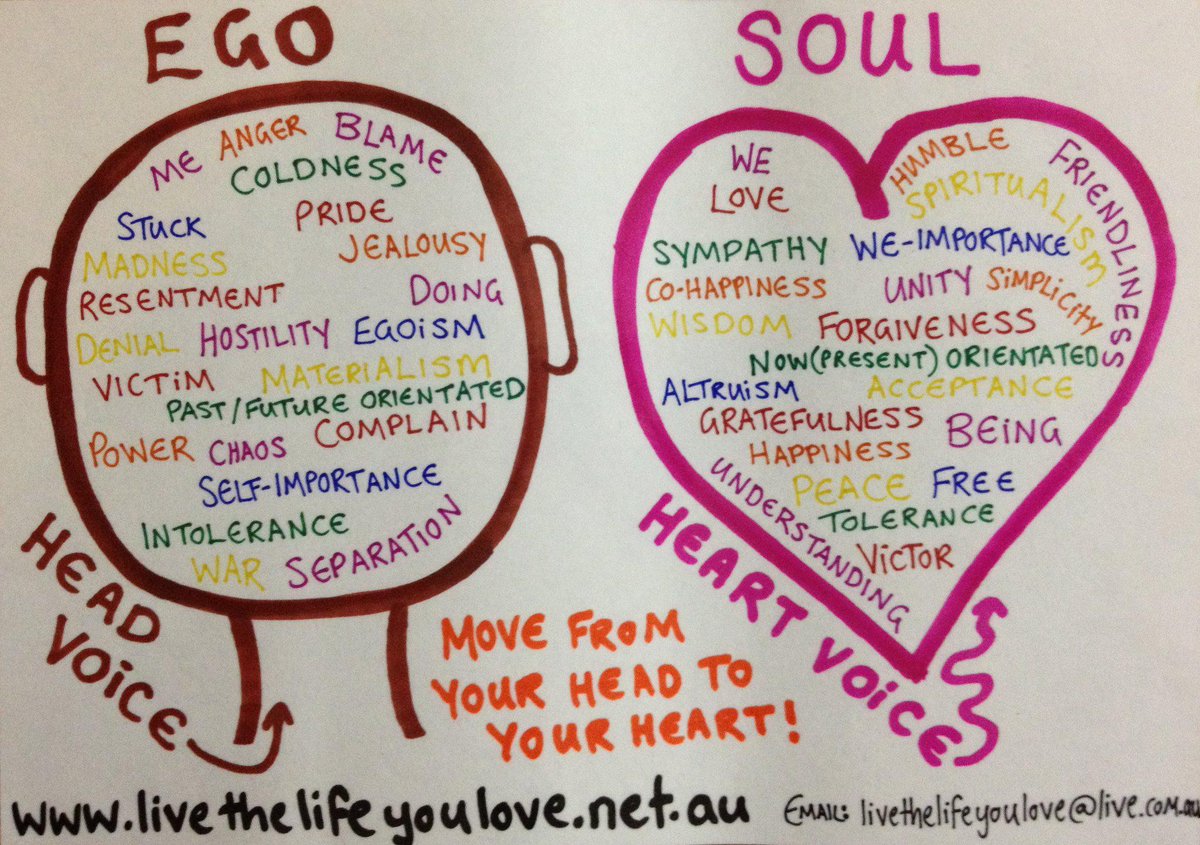 EGO
ME ANGER BLAME
COLDNESS
STUCK PRIDE
MADNESS JEALOUSY
RESENTMENT DOING
DENIAL HOSTILITY EGOiSM
VICTiM MATERIALISM
PAST/FUTURE ORIENTATED
POWER CHAOS COMPLAIN
SELF-IMPORTANCE
INTOLERANCE
WAR SEPARATION
HEAD
VOiCE
SOUL
WE HUMBLE FRIENDLINESS
LOVE SPIRITUALISM
SYMPATHY WE-IMPORTANCE
CO-HAPPINESS UNITY SiMPLICITY
WISDOM FORGIVENESS
NOW(PRESENT) ORIENTATED
ALTRUiSM ACCEPTANCE
GRATEFULNESS BEiNG
HAPPINESS
UNDERSTANDING PEACE FREE
TOLERANCE
VICTOR
HEART VOiCE
MOVE FROM
YOUR HEAD TO
YOUR HEART!
www.livethelifeyoulove.net.au
EMAIL: livethelifeyoulove@live.com.au